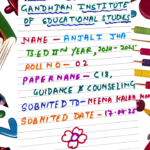 GANDHIAN INSTITUTE
OF EDUCATIONAL STUDIES
NAME - ANJALI JHA
B.ED IInd YEAR, 2020-2021
ROLL NO - 02
PAPER NAME - C18,
GUIDANCE & COUNSELING
SOBMITED TO - MEENA
SOBMITED DATE - 17-04-25